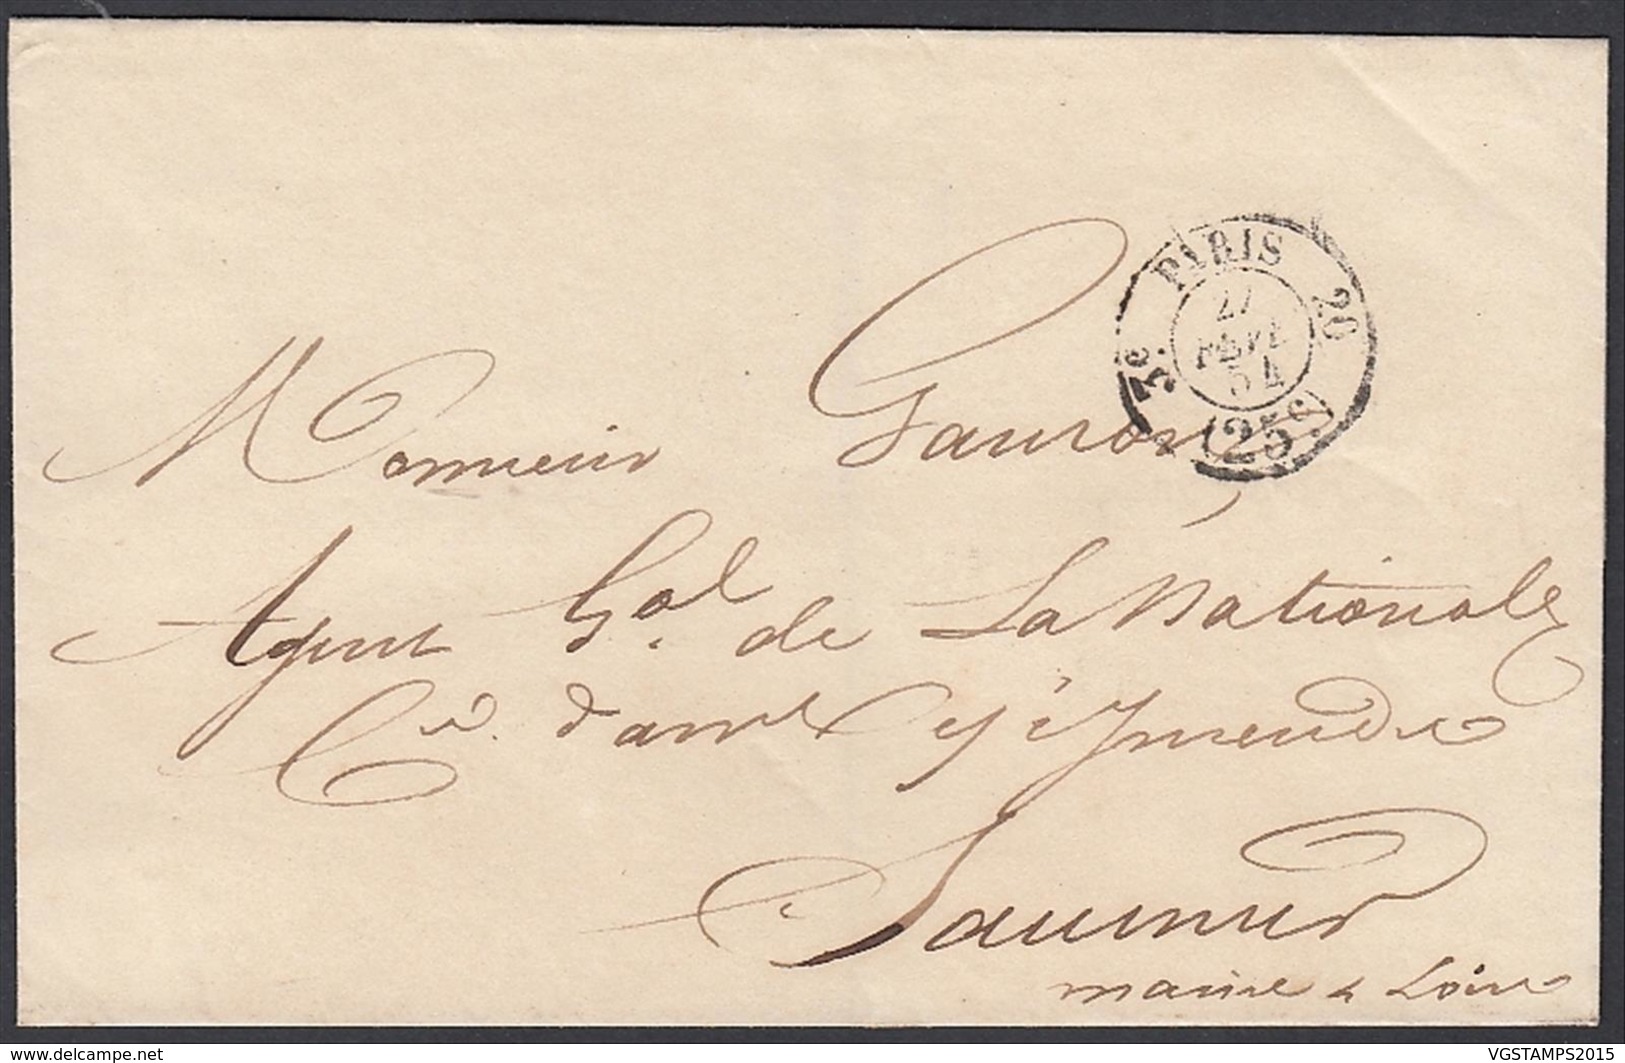 PARIS
20
27
FEVR
54
3e
(25c)
Monsieur Gauron
Agent Gal de La Nationale
Cie d'assces c/ l'Incendie
Saumur
maine & Loire
delcampe.net
VGSTAMPS2015